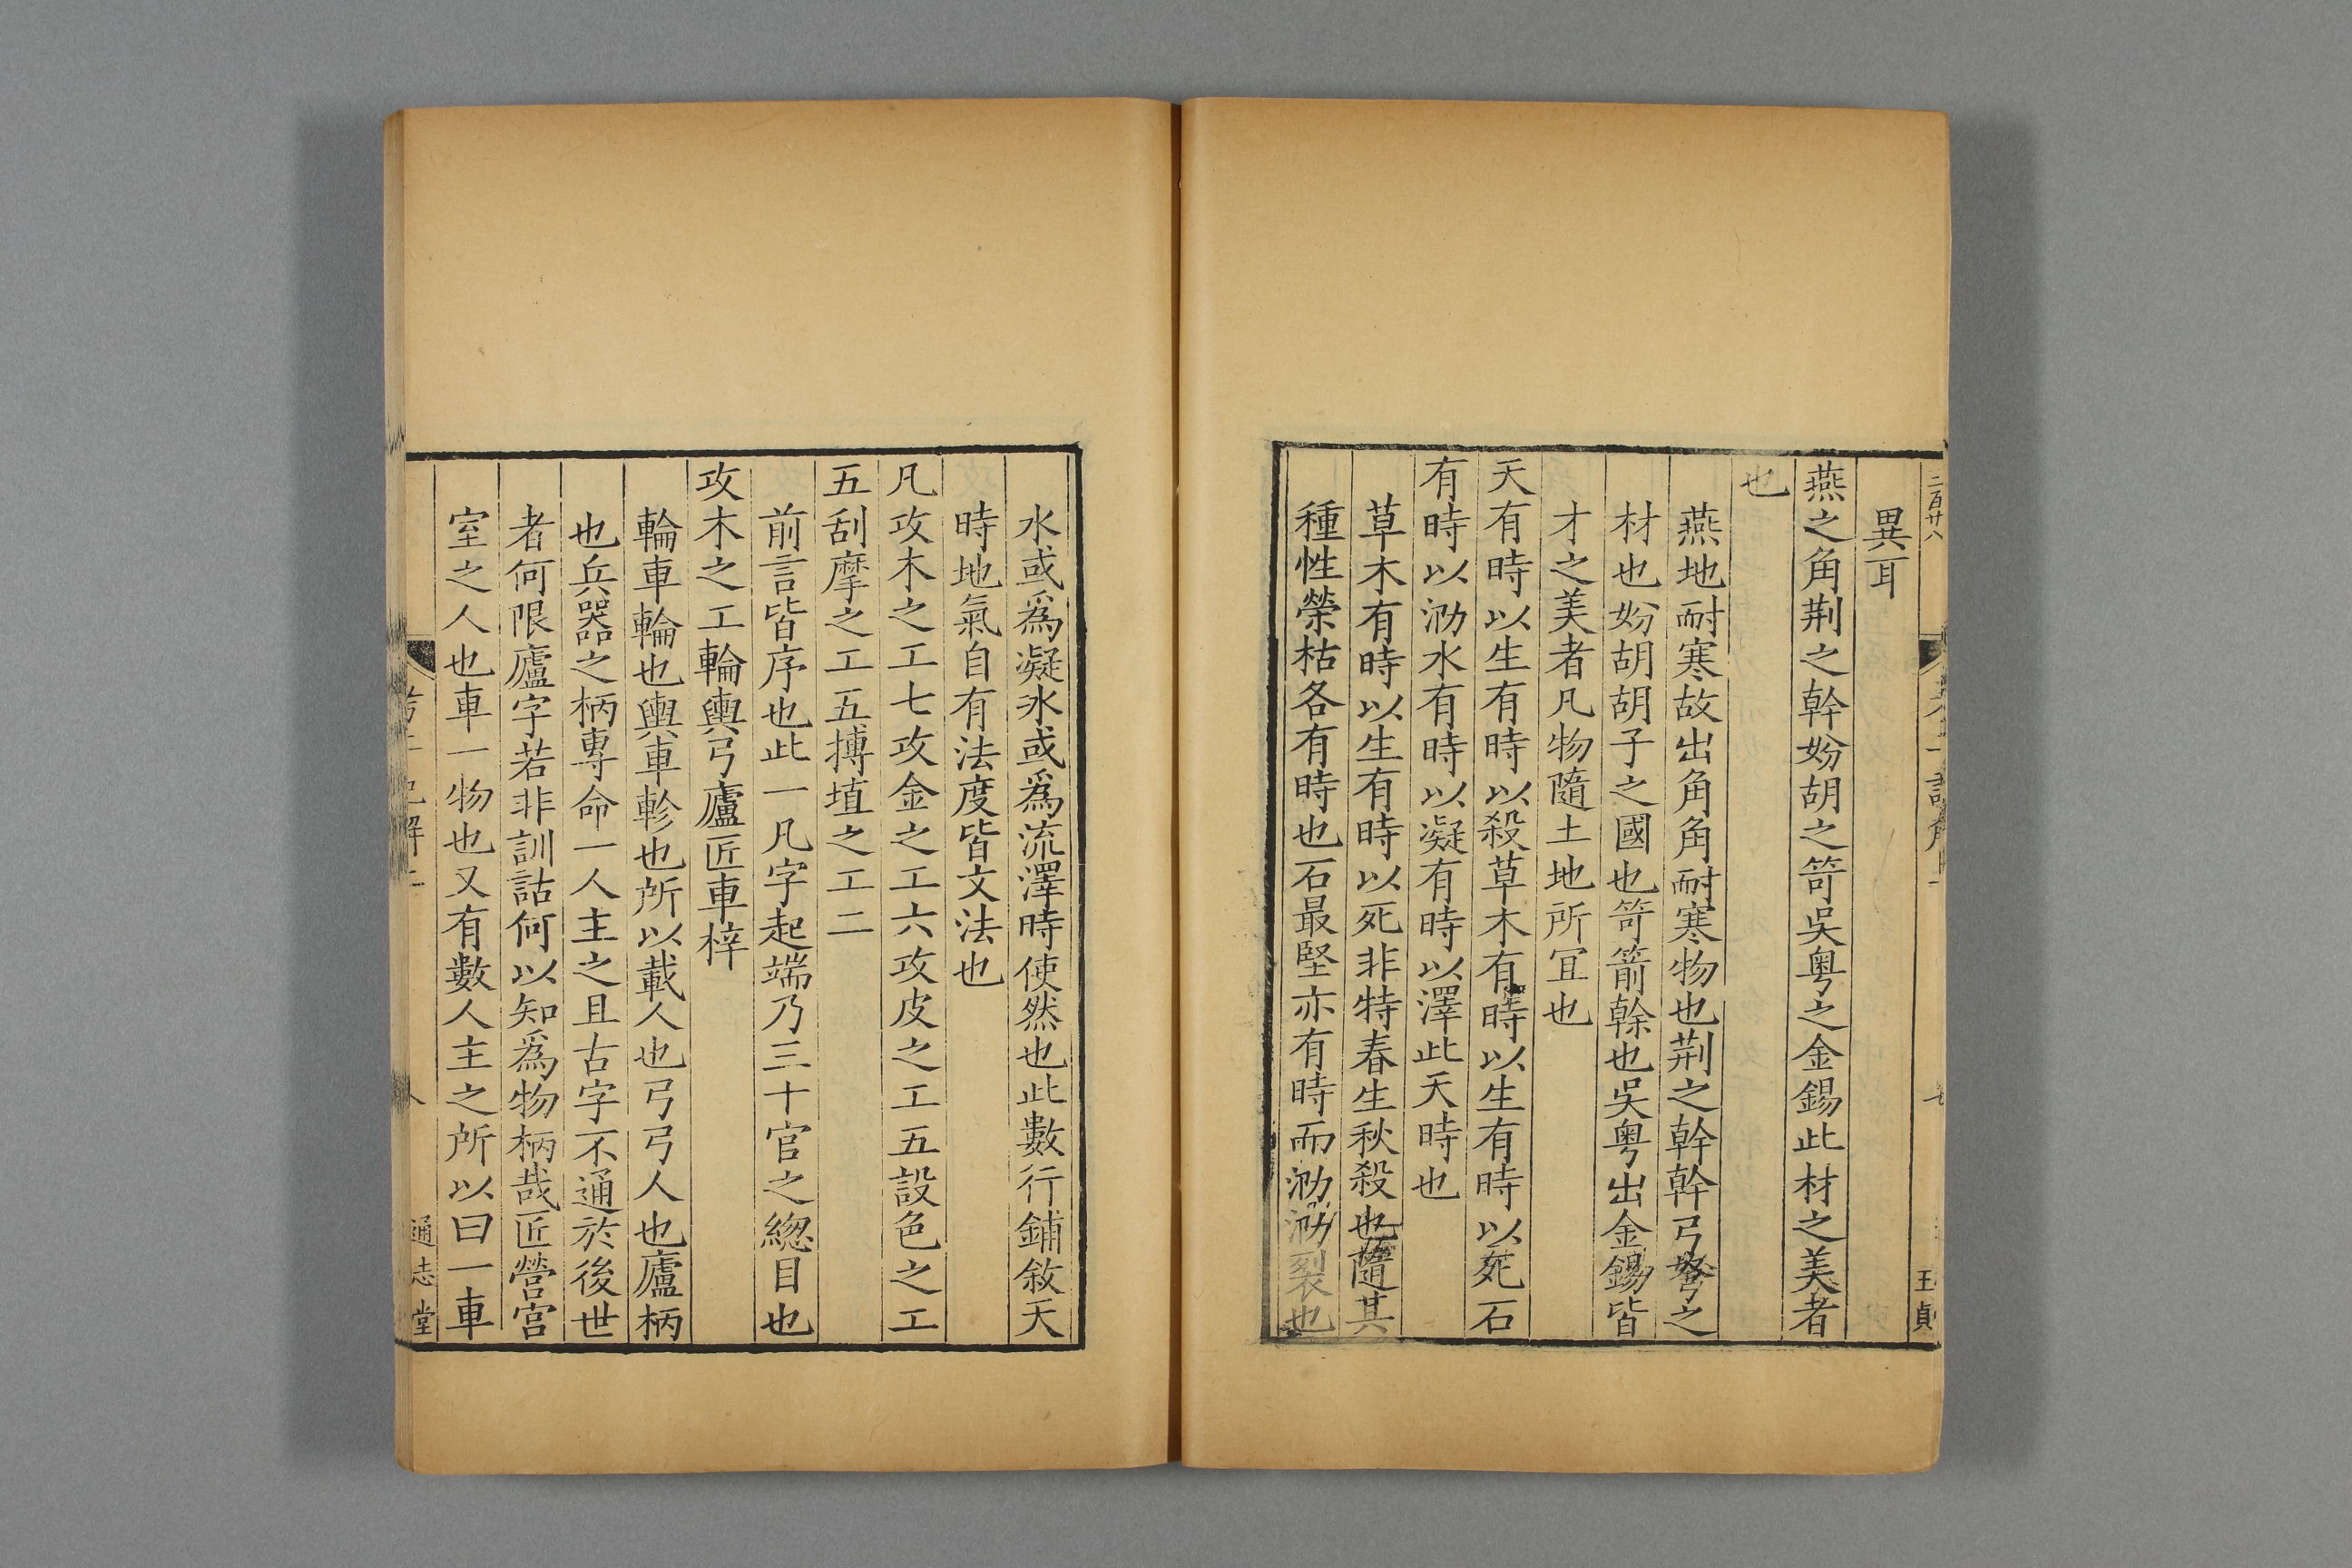 二百廿八
王貞
異耳
燕之角荆之幹妢胡之笴吳粤之金錫此材之美者
也
燕地耐寒故出角角耐寒物也荆之幹幹弓弩之
材也妢胡胡子之國也笴箭榦也吳粤出金錫皆
才之美者凡物隨土地所冝也
天有時以生有時以殺草木有時以生有時以死石
有時以泐水有時以凝有時以澤此天時也
草木有時以生有時以死非特春生秋殺也隨其
種性榮枯各有時也石最堅亦有時而泐泐裂也
水或爲凝氷或爲流澤時使然也此數行鋪敘天
時地氣自有法度皆文法也
凡攻木之工七攻金之工六攻皮之工五設色之工
五刮摩之工五搏埴之工二
前言皆序也此一凡字起端乃三十官之緫目也
攻木之工輪輿弓廬匠車梓
輪車輪也輿車軫也所以載人也弓弓人也廬柄
也兵器之柄專命一人主之且古字不通於後世
者何限廬字若非訓詁何以知爲物柄哉匠營宫
室之人也車一物也又有數人主之所以曰一車
通志堂